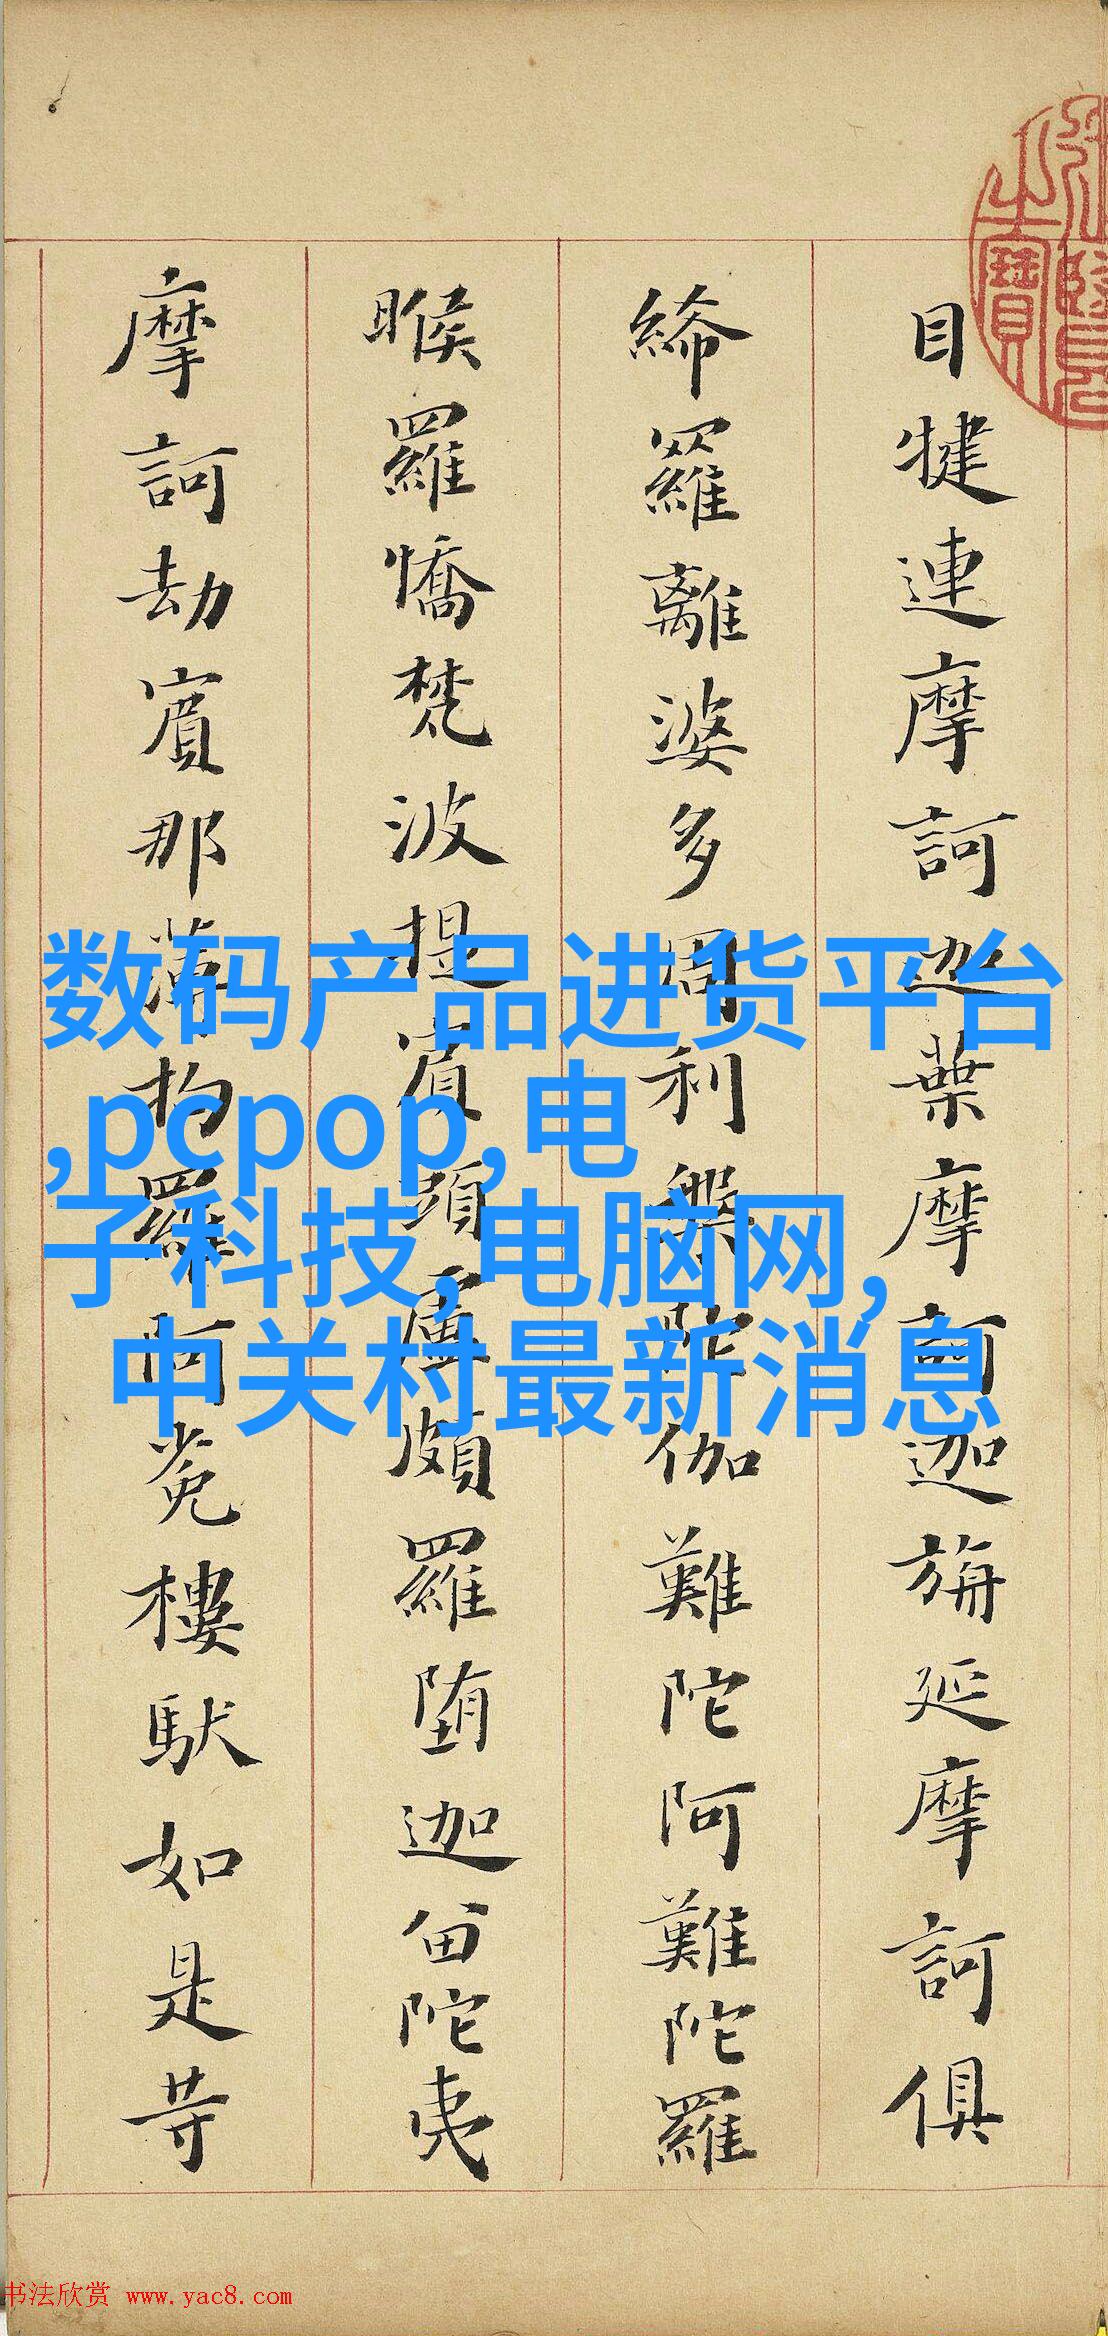 目犍連摩訶迦葉摩訶迦旃延摩訶俱
絺羅離婆多周利槃陀伽難陀阿難陀羅
睺羅憍梵波提賓頭盧頗羅堕迦留陀夷
摩訶劫賓那薄拘羅阿㝹樓馱如是等
之寶
数码产品进货平台
,pcpop,电
子科技,电脑网,
中关村最新消息
书法欣赏 www.yac8.com